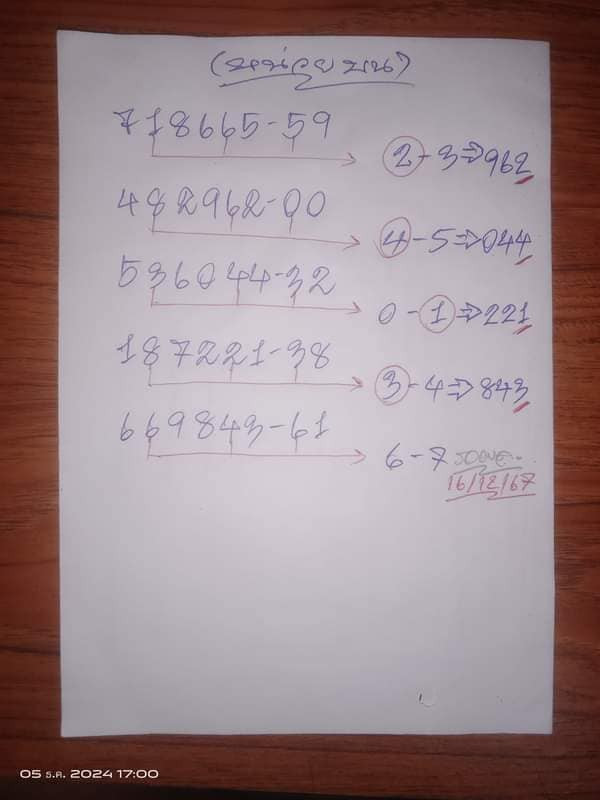 (หน่วยบน)
718665-59
2-3⇒962
482962-00
4-5⇒044
536044-32
0-1⇒221
187221-38
3-4⇒843
669843-61
6-7
16/12/67
05 ธ.ค. 2024 17:00